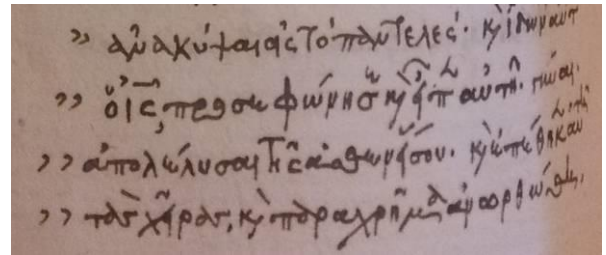 » ἀνακύψαι εἰς τὸ παντελές· κὶ ἰδὼν αὐτ
» ὁ ις, προσεφώνησε κὶ εἶπεν αὐτῆ· γύναι
» ἀπολέλυσαι τῆς ἀσθενείας σου· κὶ ἐπέθηκεν αὐτῆ
» τὰς χεῖρας, κὶ παραχρῆμα ἀνορθώθη,